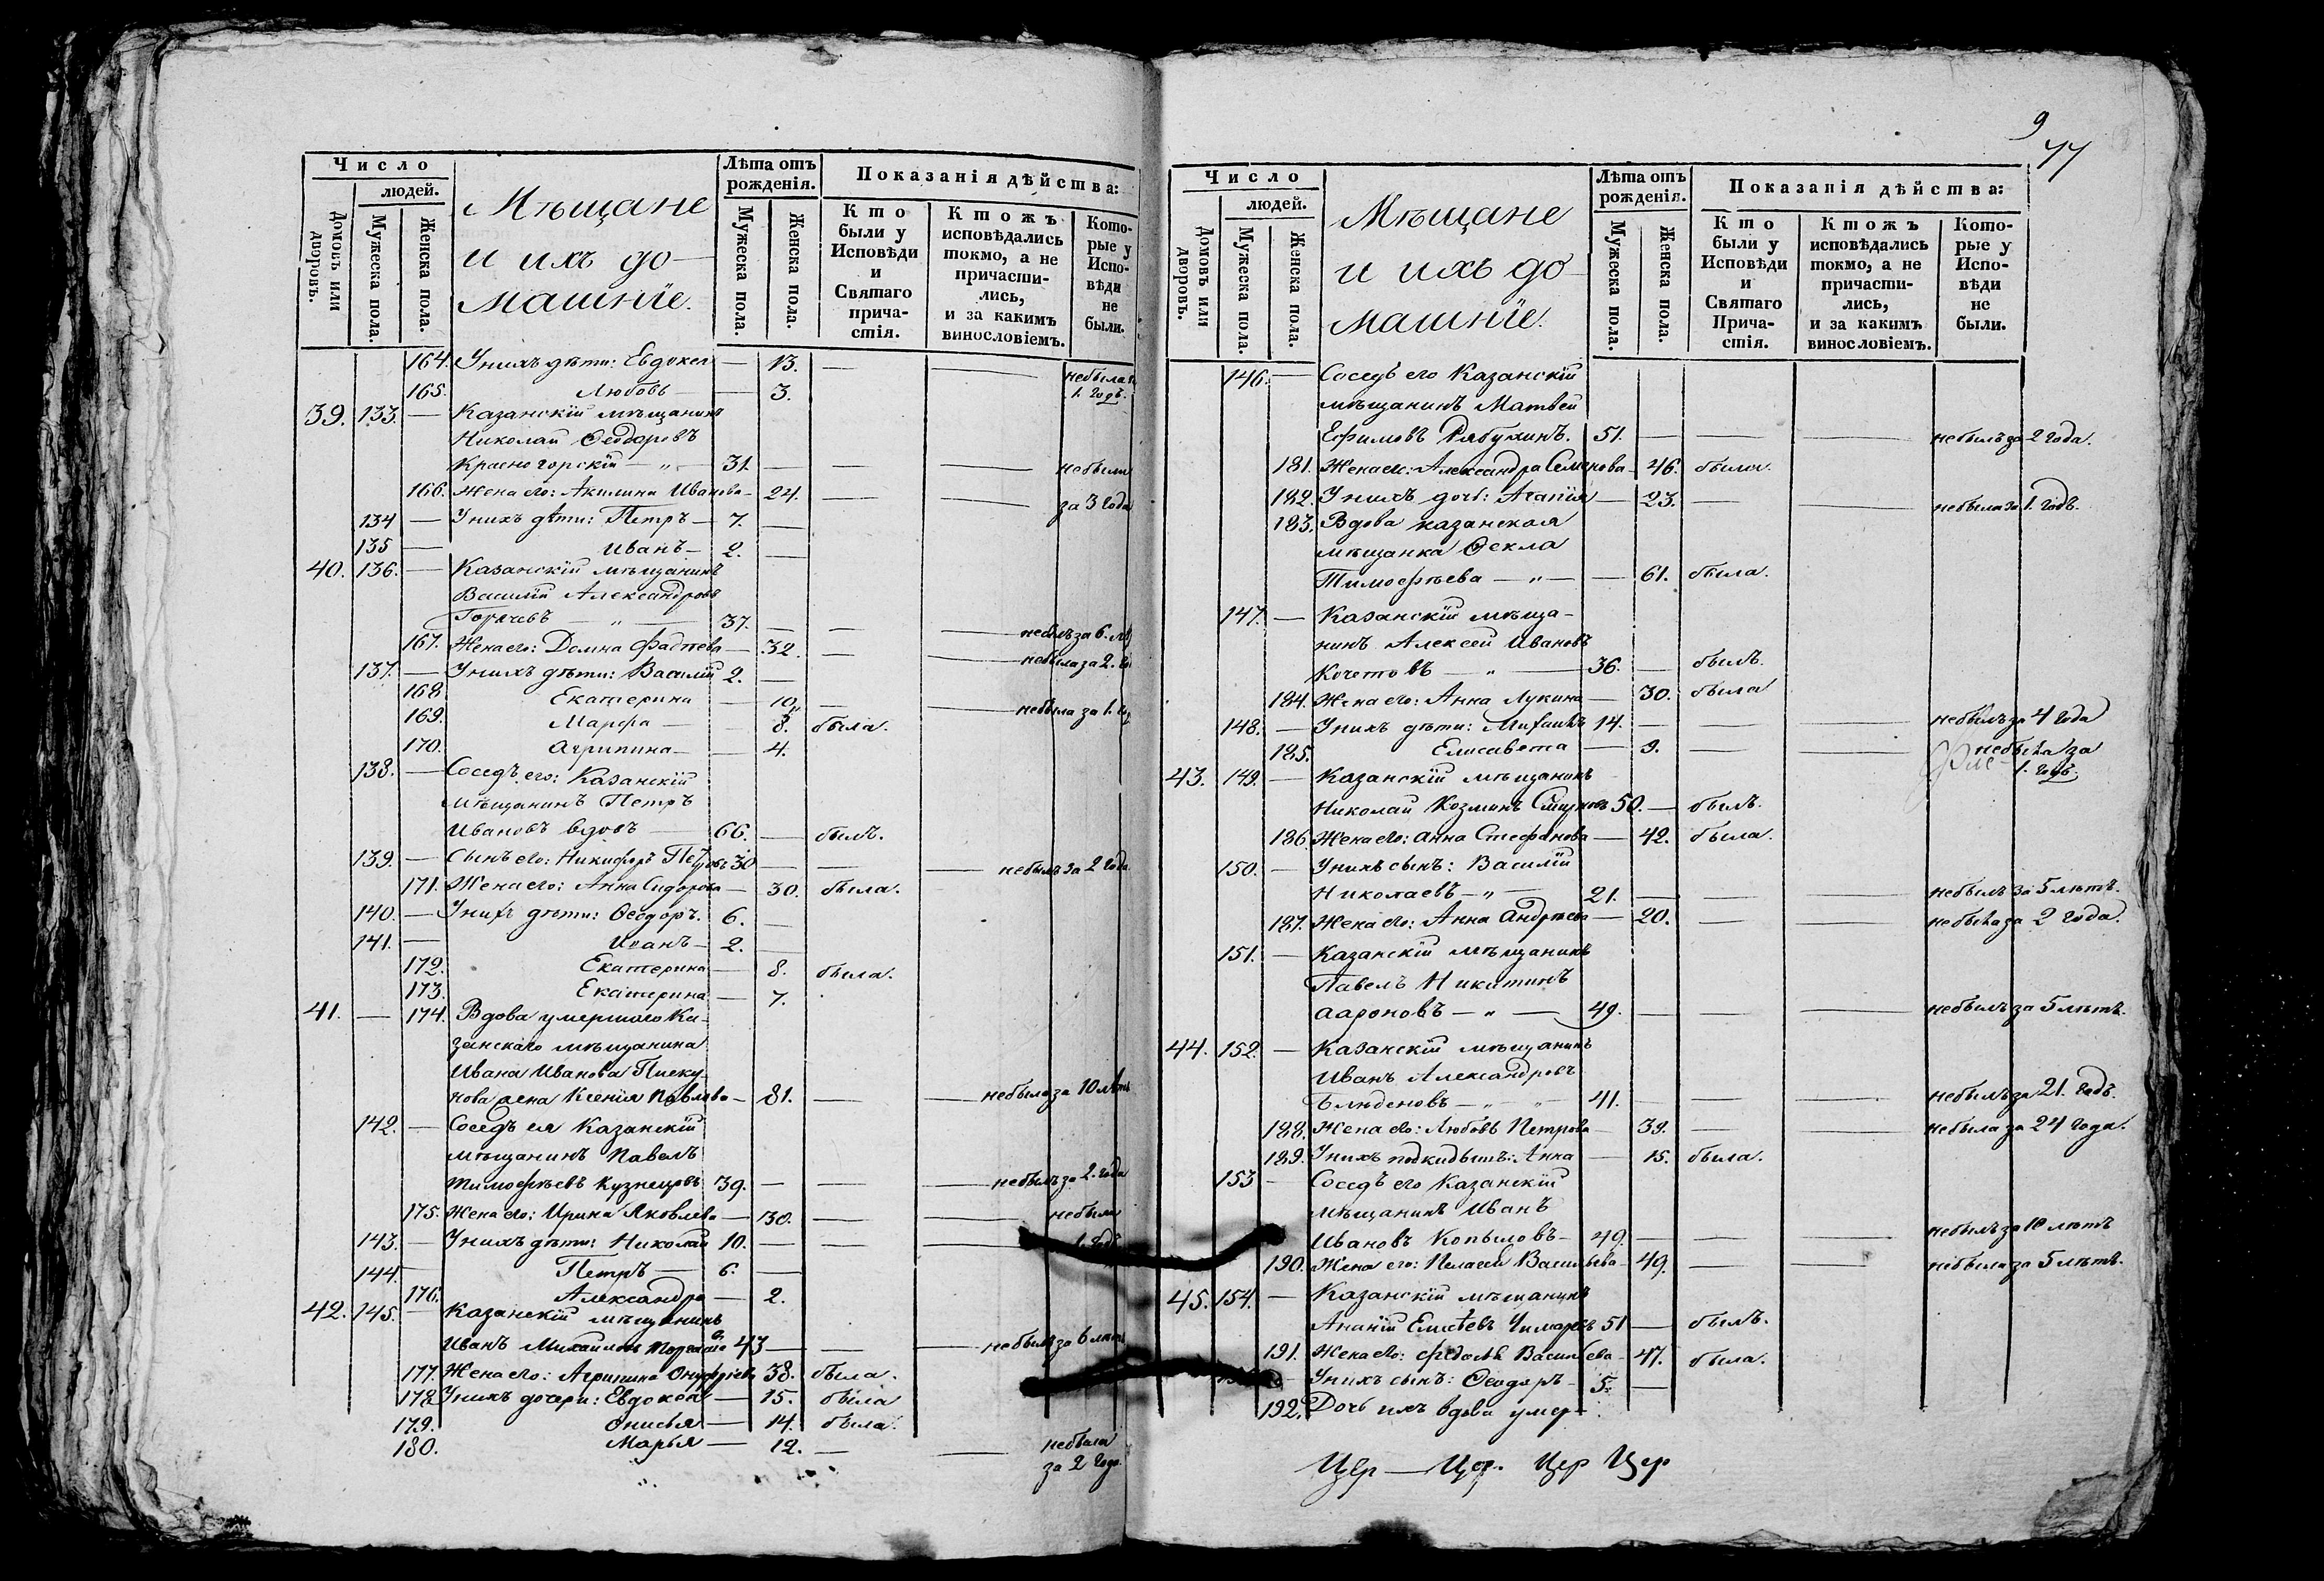 Число
людей.
Домовъ или дворовъ.
Мужеска пола.
Женска пола.
Мѣщане
и ихъ до-
машніе.
Лѣта отъ рожденія.
Мужеска пола.
Женска пола.
Показанія дѣйства:
Кто были у Исповѣди и Святаго прича-стія.
Ктожъ исповѣдались токмо, а не причасти-лись, и за какимъ винословіемъ.
Кото-рые у Испо-вѣди не были.
164. У нихъ дѣти: Евдокея — 13. — — не была
1. годъ.
165. Любовь — 3.
39. 133. — Казанскій мѣщанинъ
Николай Ѳеодоровъ
Красногорскій — „ — 31. — — — не были
166. Жена его: Акилина Иванова — 24. — — за 3 года
134 — У нихъ дѣти: Петръ — 7. —
135 — Иванъ — 2. —
40. 136. — Казанскій мѣщанинъ
Василій Александровъ
Горячевъ — „ — 37. — — — не былъ за 6. лѣ
167. Жена его: Домна Фадѣева — 32. — — не была за 2. го
137. — У нихъ дѣти: Василій 2. —
168. Екатерина — 10. — — не была за 1. год
169. Марфа — 8. была.
170. Агрипина — 4.
138. — Соседъ его: Казанскій
мѣщанинъ Петръ
Ивановъ вдовъ — 66. — былъ.
139. — Сынъ его: Никифоръ Петровъ 30 — — — не былъ за 2 года
171. Жена его: Анна Сидорова — 30. была.
140. — У нихъ дѣти: Ѳеодоръ. 6. —
141. — Иванъ — 2. —
172. Екатерина — 8. была.
173. Екатерина — 7.
41. — 174. Вдова умершаго Ка-
занскаго мѣщанина
Ивана Иванова Писку-
нова жена Ксенія Павлова — 81. — — не была за 10 лѣтъ
142. — Соседъ ея Казанскій
мѣщанинъ Павелъ
Тимофѣевъ Кузнецовъ 39. — — — не былъ за 2. года
175. Жена его: Ирина Яковлева — 30. — — не были
143. — У нихъ дѣти: Николай 10. — — — 1. годъ
144. — Петръ — 6. —
176. Александра — 2.
42. 145. — Казанскій мѣщанинъ
Иванъ Михайловъ 43 — — — не былъ за 6 лѣтъ
177. Жена его: Агрипина Онуфріева 38. была.
178. У нихъ дочери: Евдокея — 15. была
179. Анисья — 14. была.
180. Марья — 12. — — не была
за 2 года
9
77
Число
людей.
Домовъ или дворовъ.
Мужеска пола.
Женска пола.
Мѣщане
и ихъ до-
машніе.
Лѣта отъ рожденія.
Мужеска пола.
Женска пола.
Показанія дѣйства:
Кто были у Исповѣди и Святаго Прича-стія.
Ктожъ исповѣдались токмо, а не причасти-лись, и за какимъ винословіемъ.
Кото-рые у Испо-вѣди не были.
146. — Соседъ его Казанскій
мѣщанинъ Матвей
Ефимовъ Рябухинъ. 51. — — — не былъ за 2 года.
181. Жена его: Александра Семенова — 46. была.
182. У нихъ дочь: Агапія — 23. — не была за 1. годъ.
183. Вдова казанская
мѣщанка Ѳекла
Тимофѣева — „ — — 61. была.
147. — Казанскій мѣща-
нинъ Алексей Ивановъ
Кочетовъ — „ — 36. — былъ.
184. Жена его: Анна Лукина — 30. была
148. — У нихъ дѣти: Михаилъ 14. — — — не былъ за 4 года
185. Елисавета — 9. — — не была за
1. годъ.
43. 149. — Казанскій мѣщанинъ
Николай Козминъ Смирновъ 50. — былъ.
186 Жена его: Анна Стефанова — 42. была.
150. — У нихъ сынъ: Василій
Николаевъ — „ — 21. — — — не былъ за 5 лѣтъ.
187. Жена его: Анна Андреева — 20. — — не была за 2 года.
151. — Казанскій мѣщанинъ
Павелъ Никитинъ
Аароновъ — „ — 49. — — — не былъ за 5 лѣтъ.
44. 152. — Казанскій мѣщанинъ
Иванъ Александровъ
Блюденовъ — „ — „ — 41. — — — не былъ за 21. годъ.
188. Жена его: Любовь Петрова — 39. — — не была за 24 года.
189. У нихъ подкидышъ: Анна — 15. была.
153 — Соседъ его Казанскій
мѣщанинъ Иванъ
Ивановъ Копыловъ — 49. — — — не былъ за 10 лѣтъ
190. Жена его: Пелагея Васильева — 49. — — не была за 5 лѣтъ.
45. 154. — Казанскій мѣщанинъ
Ананій Елисѣевъ 51 — былъ.
191. Жена его: Васильева — 47. была.
— У нихъ сынъ: Ѳеодоръ — 5. —
192. Дочь ихъ вдова умер-
Цер — Цер. Цер Цер